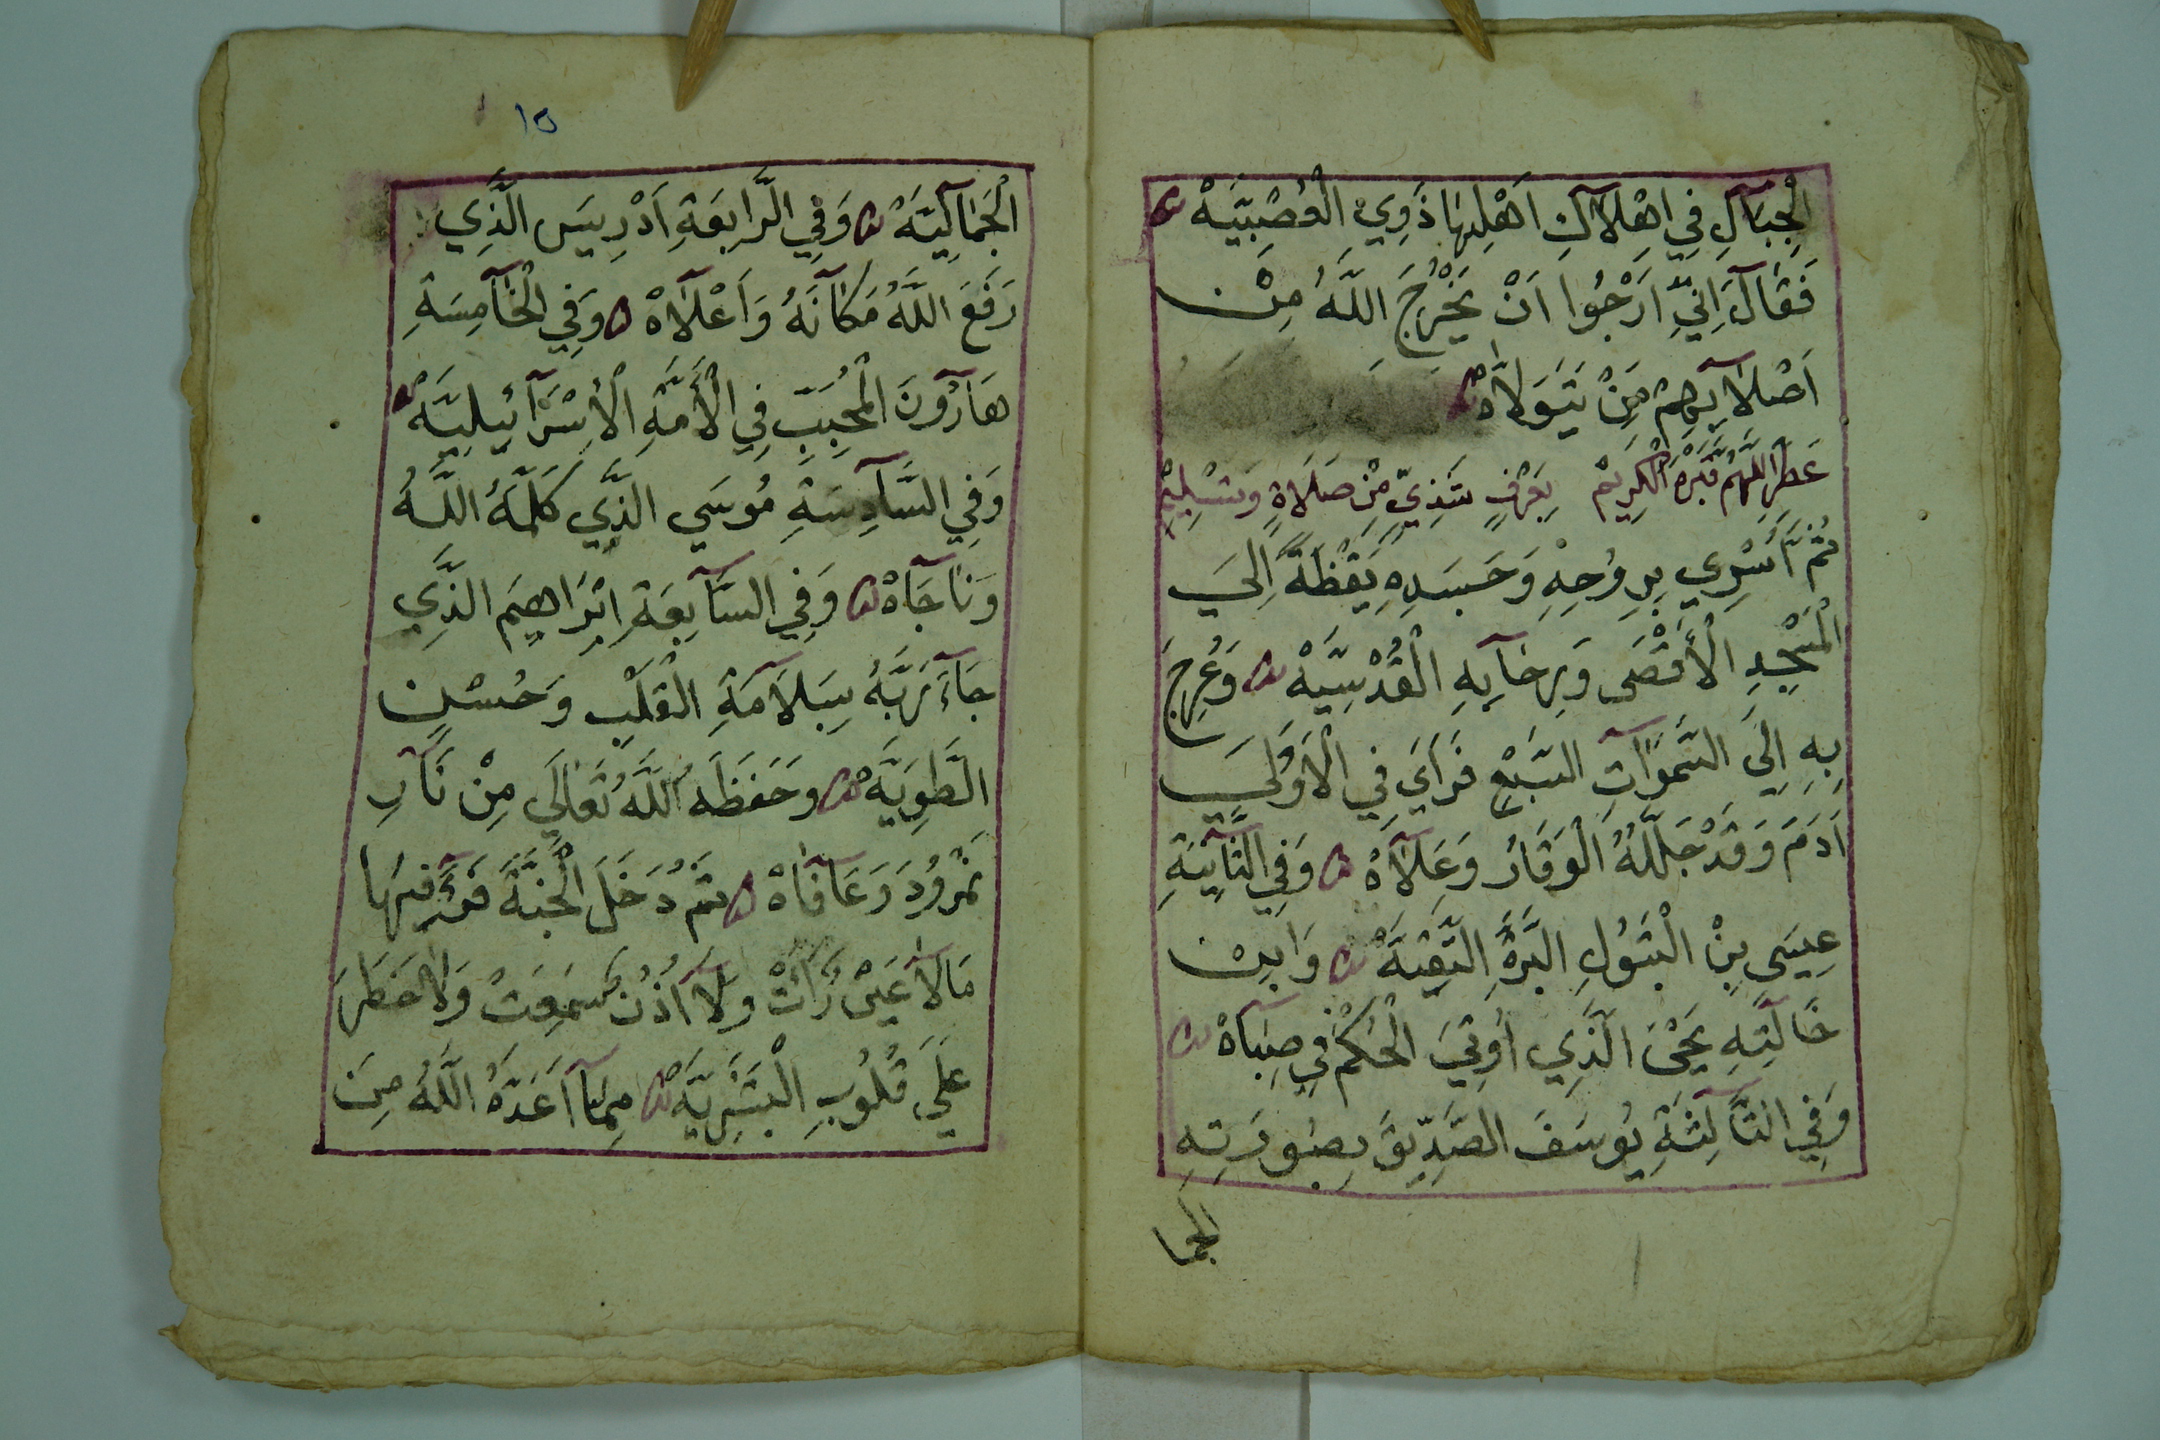 الْجِبَآلِ فِي اِهْلَآكِ اَهْلِهَا ذَوِي الْعُصْبِيَّةْ
فَقَالَ اِنِّي اَرْجُوا اَنْ يَخْرُجَ اللَّهُ مِنْ
اَصْلَابِهِمْ مَنْ يَتَوَلَّاهْ
عَطِّرِ اللَّهُمَّ قَبْرَهُ الْكَرِيمْ بِعَرْفٍ شَذِيٍّ مِنْ صَلَاةٍ وَتَسْلِيمْ
ثُمَّ اُسْرِيَ بِرُوحِهِ وَجَسَدِهِ يَقْظَةً اِلَيَ
الْمَسْجِدِ الْأَقْصَى وَرِحَابِهِ الْقُدْسِيَّةْ وَعُرِجَ
بِهِ اِلَيَ السَّمَوَآتِ السَّبْعِ فَرَاَيَ فِي الْاُوْلَيَ
اَدَمَ وَقَدْ جَلَّلَهُ الْوَقَارُ وَعَلَآهْ وَفِي الثَّآنِيَةِ
عِيسَى بْنِ الْبَتُولِ الْبَرَّةِ التَّقِيَّةْ وَابْنِ
خَالَتِهِ يَحْيَى الَّذِي اُوتِيَ الْحُكْمْ فِي صِبَآهْ
وَفِي الثَّآلِثَةِ يُوسَفَ الصِّدِّيقَ بِصُورَتِهِ
الجما
١٥
الْجَمَآلِيَّةْ وَفِي الرَّابِعَةِ اَدْرِيسَ الَّذِي
رَفَعَ اللَّهُ مَكَآنَهُ وَاَعْلَآهْ وَفِي الْخَآمِسَةِ
هَآرُونَ الْمُحَبَّبِ فِي الْأُمَّةِ الْاِسْرَآئِيلِيَّةْ
وَفِي السَّآدِسَةِ مُوسَي الَّذِي كَلَّمَهُ اللَّهُ
وَنَاجَآهْ وَفِي السَّآبِعَةِ اِبْرَاهِيمَ الَّذِي
جَآءَ رَبَّهُ بِسَلَامَةِ الْقَلْبِ وَحُسْنِ
الطَّوِيَّةْ وَحَفَظَهُ اللَّهُ تَعَالَي مِنْ نَآرِ
نَمْرُودَ وَعَافَآهْ ثُمَّ دَخَلَ الْجَنَّةَ فَرَءَ فِيهَا
مَالَا عَيْنٌ رَأَتْ وَلَآ اُذُنٌ سَمِعَتْ وَلَا خَطَرَ
عَلَي قُلُوبِ الْبَشَرِيَّةْ مِمَّآ اَعَدَّهُ اللَّهُ مِنَ